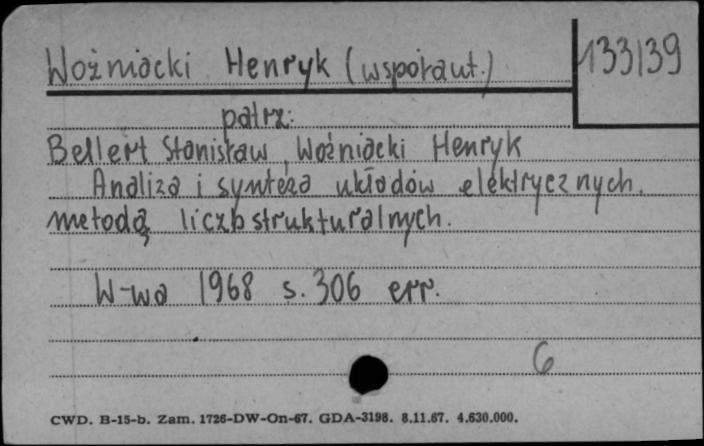 Woźniacki Henryk (współaut.)
133139
patrz:
Bellert Stanisław, Woźniacki Henryk
Analiza i synteza układów elektrycznych
metodą liczb strukturalnych.
W-wa 1968 s. 306 err.
6
CWD. B-15-b. Zam. 1726-DW-On-67. GDA-3198. 8.11.67. 4.630.000.